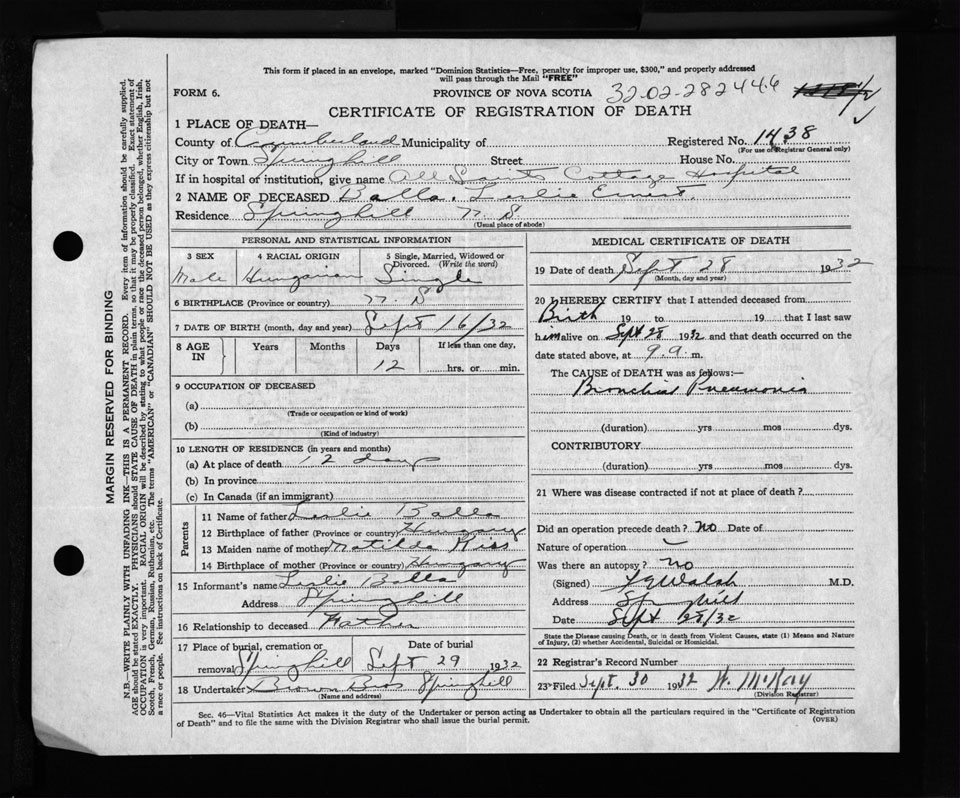 This form if placed in an envelope, marked "Dominion Statistics—Free, penalty for improper use, $300," and properly addressed
will pass through the Mail "FREE"
FORM 6. PROVINCE OF NOVA SCOTIA 32-02-282446
CERTIFICATE OF REGISTRATION OF DEATH
1 PLACE OF DEATH—
County of Cumberland Municipality of Registered No. 1438
(For use of Registrar General only)
City or Town Springhill Street House No.
If in hospital of institution, give name All Saints Cottage Hospital
2 NAME OF DECEASED Balla, Leslie Ernest.
Residence Springhill N. S
(Usual place of abode)
PERSONAL AND STATISTICAL INFORMATION
3 SEX 4 RACIAL ORIGIN 5 Single, Married, Widowed or
Divorced. (Write the word)
Male Hungarian Single
6 BIRTHPLACE (Province or country) N. S
7 DATE OF BIRTH (month, day and year) Sept 16/32
8 AGE IN Years Months Days If less than one day,
12 hrs. or min.
9 OCCUPATION OF DECEASED
(a)
(Trade or occupation or kind of work)
(b)
(Kind of industry)
10 LENGTH OF RESIDENCE (in years and months)
(a) At place of death 12 days
(b) In province
(c) In Canada (if an immigrant)
Parents
11 Name of father Leslie Balla
12 Birthplace of father (Province or country) Hungary
13 Maiden name of mother Matilda Kiss
14 Birthplace of mother (Province or country) Hungary
15 Informant's name Leslie Balla
Address Springhill
16 Relationship to deceased Father
17 Place of burial, cremation or Date of burial
removal Springhill Sept 29 1932
18 Undertaker Brown Bros Springhill
(Name and address)
MEDICAL CERTIFICATE OF DEATH
19 Date of death Sept 28 1932
(Month, day and year)
20 I HEREBY CERTIFY that I attended deceased from
Birth 19 to 19 that I last saw
him alive on Sept 28 1932 and that death occurred on the
date stated above, at 9. a. m.
The CAUSE of DEATH was as follows:—
Bronchial Pneumonia
(duration) yrs mos dys.
CONTRIBUTORY
(duration) yrs mos dys.
21 Where was disease contracted if not at place of death?
Did an operation precede death? No Date of
Nature of operation —
Was there an autopsy? no
(Signed) Walsh M.D.
Address Springhill
Date Sept 28/32
State the Disease causing Death, or in death from Violent Causes, state (1) Means and Nature
of Injury, (2) whether Accidental, Suicidal or Homicidal.
22 Registrar's Record Number
23 Filed Sept. 30 1932 W. McKay
(Division Registrar)
Sec. 46—Vital Statistics Act makes it the duty of the Undertaker or person acting as Undertaker to obtain all the particulars required in the "Certificate of Registration
of Death" and to file the same with the Division Registrar who shall issue the burial permit. (OVER)
MARGIN RESERVED FOR BINDING
N.B.—WRITE PLAINLY WITH UNFADING INK—THIS IS A PERMANENT RECORD. Every item of information should be carefully supplied.
AGE should be stated EXACTLY. PHYSICIANS should STATE CAUSE OF DEATH in plain terms, so that it may be properly classified. Exact statement of
OCCUPATION is very important. RACIAL ORIGIN will be described by stating to what people or race the deceased person belonged, whether English, Irish,
Scotch, French, German, Russian, Ruthenian, etc. The terms "AMERICAN" or "CANADIAN" SHOULD NOT BE USED as they express citizenship but not
a race or people. See instructions on back of Certificate.